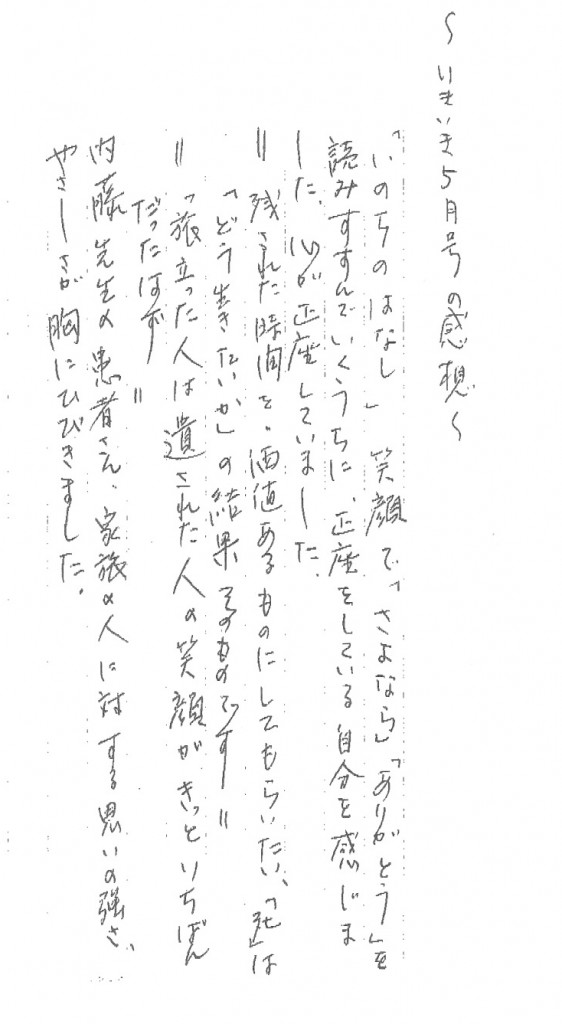 ～いきいき5月号の感想～
「いのちのはなし」 笑顔で、「さよなら」「ありがとう」を
読みすすんでいくうちに、正座をしている自分を感じま
した。心が正座していました。
＝残された時間を、価値あるものにしてもらいたい、「死」は
「どう生きたいか」の結果そのものです＝
＝「旅立った人は遺された人の笑顔がきっといちばん
だったはず＝
内藤先生の患者さん、家族の人に対する思いの強さ、
やさしさが胸にひびきました。